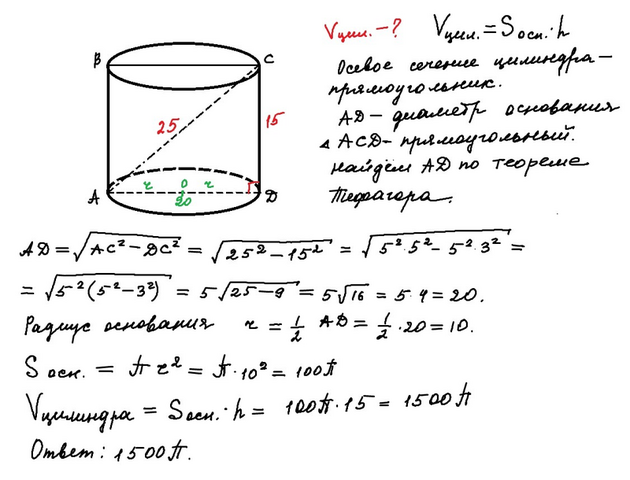 Vцил. – ? Vцил. = Sосн. · h
Осевое сечение цилиндра –
прямоугольник.
AD – диаметр основания
△ ACD – прямоугольный.
Найдём AD по теореме
Пифагора.
B C
25 15
r O r
A 20 D
AD = √(AC² – DC²) = √(25² – 15²) = √(5²·5² – 5²·3²) =
= √(5²(5² – 3²)) = 5√(25 – 9) = 5√16 = 5·4 = 20.
Радиус основания r = 1/2 AD = 1/2 · 20 = 10.
Sосн. = πr² = π·10² = 100π
Vцилиндра = Sосн. · h = 100π · 15 = 1500π
Ответ: 1500π.